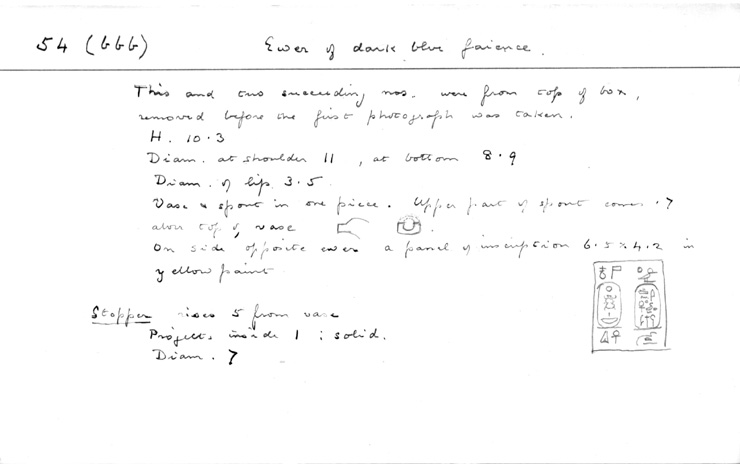 54 (bbb) Ewer of dark blue faience.
This and two succeeding nos. were from top of box,
removed before the first photograph was taken.
H. 10.3
Diam. at shoulder 11, at bottom 8.9
Diam. of lip 3.5
Vase & spout in one piece. Upper part of spout comes .7
above top of vase
On side opposite ewer a panel of inscription 6.5 x 4.2 in
yellow paint.
Stopper rises 5 from vase
Projects inside 1 ; solid.
Diam. 7